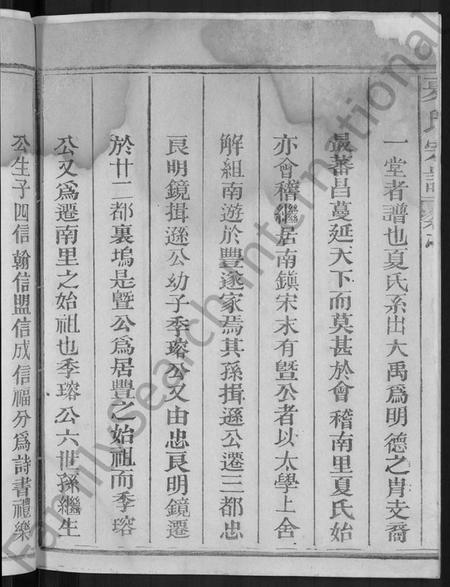 夏氏宗譜
一堂者譜也夏氏系出大禹爲明德之胄支裔
最蕃昌蔓延天下而莫甚於會稽南里夏氏始
亦會稽繼居南鎮宋末有曁公者以太學上舍
解組南遊於豐遂家焉其孫揖遜公遷三都忠
良明鏡揖遜公幼子季瑢公又由忠良明鏡遷
於廿二都裏塢是曁公爲居豐之始祖而季瑢
公又爲遷南里之始祖也季瑢公六世孫繼生
公生子四信翰信盟信成信福分爲詩書禮樂
FamilySearch International